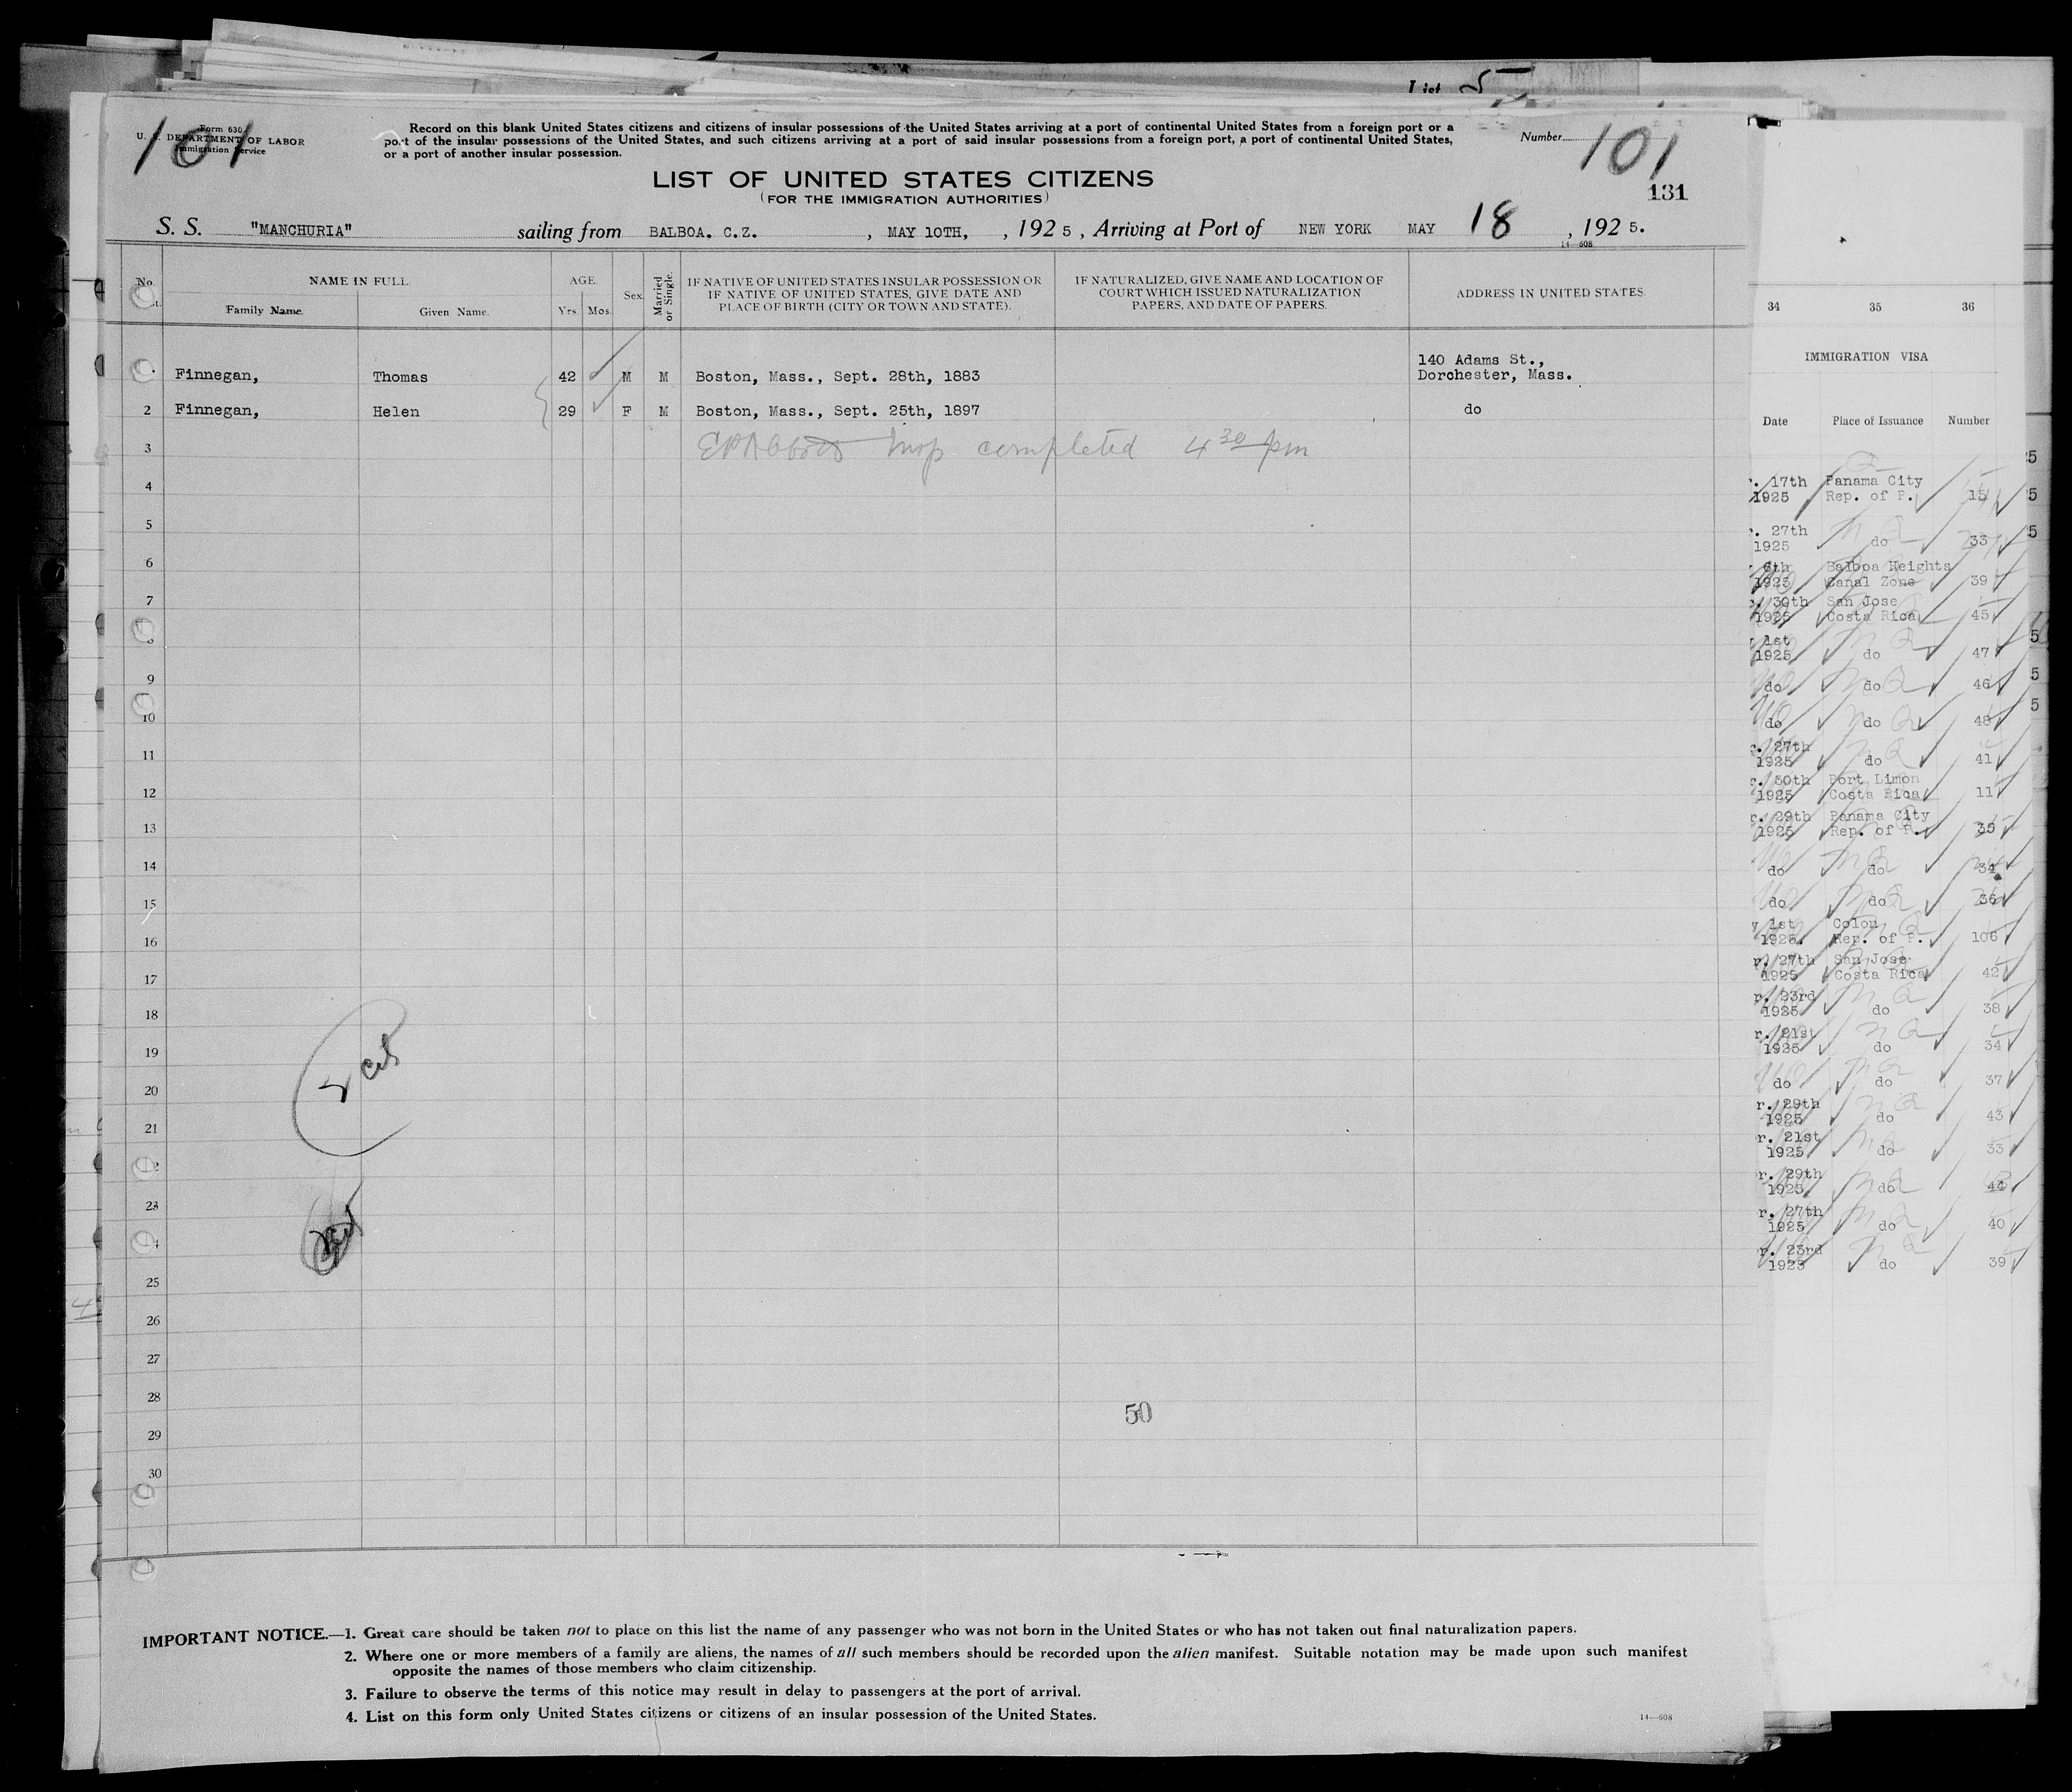 List 5
Form 630
U. S. DEPARTMENT OF LABOR
Immigration Service
101
Record on this blank United States citizens and citizens of insular possessions of the United States arriving at a port of continental United States from a foreign port or a
port of the insular possessions of the United States, and such citizens arriving at a port of said insular possessions from a foreign port, a port of continental United States,
or a port of another insular possession.
Number 101
131
LIST OF UNITED STATES CITIZENS
(FOR THE IMMIGRATION AUTHORITIES)
S. S. "MANCHURIA" sailing from BALBOA. C.Z. , MAY 10TH, , 192 5 , Arriving at Port of NEW YORK MAY 18 , 192 5.
14—608
No.
NAME IN FULL
Family Name. Given Name.
AGE
Yrs. Mos.
Sex
Married or Single.
IF NATIVE OF UNITED STATES INSULAR POSSESSION OR
IF NATIVE OF UNITED STATES, GIVE DATE AND
PLACE OF BIRTH (CITY OR TOWN AND STATE).
IF NATURALIZED, GIVE NAME AND LOCATION OF
COURT WHICH ISSUED NATURALIZATION
PAPERS, AND DATE OF PAPERS.
ADDRESS IN UNITED STATES.
140 Adams St.,
Finnegan, Thomas 42 M M Boston, Mass., Sept. 28th, 1883 Dorchester, Mass.
2 Finnegan, Helen 29 F M Boston, Mass., Sept. 25th, 1897 do
3 completed 4 30 pm
4
5
6
7
9
10
11
12
13
14
15
16
17
18
19
20
21
23
25
26
27
28
29
30
50
IMPORTANT NOTICE.—1. Great care should be taken not to place on this list the name of any passenger who was not born in the United States or who has not taken out final naturalization papers.
2. Where one or more members of a family are aliens, the names of all such members should be recorded upon the alien manifest. Suitable notation may be made upon such manifest
opposite the names of those members who claim citizenship.
3. Failure to observe the terms of this notice may result in delay to passengers at the port of arrival.
4. List on this form only United States citizens or citizens of an insular possession of the United States.
14—608
34 35 36
IMMIGRATION VISA
Date Place of Issuance Number
r. 17th Panama City
1925 Rep. of P. 15
r. 27th
1925 do 33
6th Balboa Heights
1925 Canal Zone 39
r. 30th San Jose
1925 Costa Rica 45
1st
1925 do 47
do do 46
do do 48
r. 27th
1925 do 41
r. 30th Port Limon
1925 Costa Rica 11
r. 29th Panama City
1925 Rep. of P. 35
do do 34
do do 36
y 1st Colon
1925. Rep. of P. 106
r. 27th San Jose
1925 Costa Rica 42
r. 23rd
1925 do 38
r. 21st
1925 do 34
do do 37
r. 29th
1925 do 43
r. 21st
1925 do 33
r. 29th
1925 do 44
r. 27th
1925 do 40
r. 23rd
1925 do 39